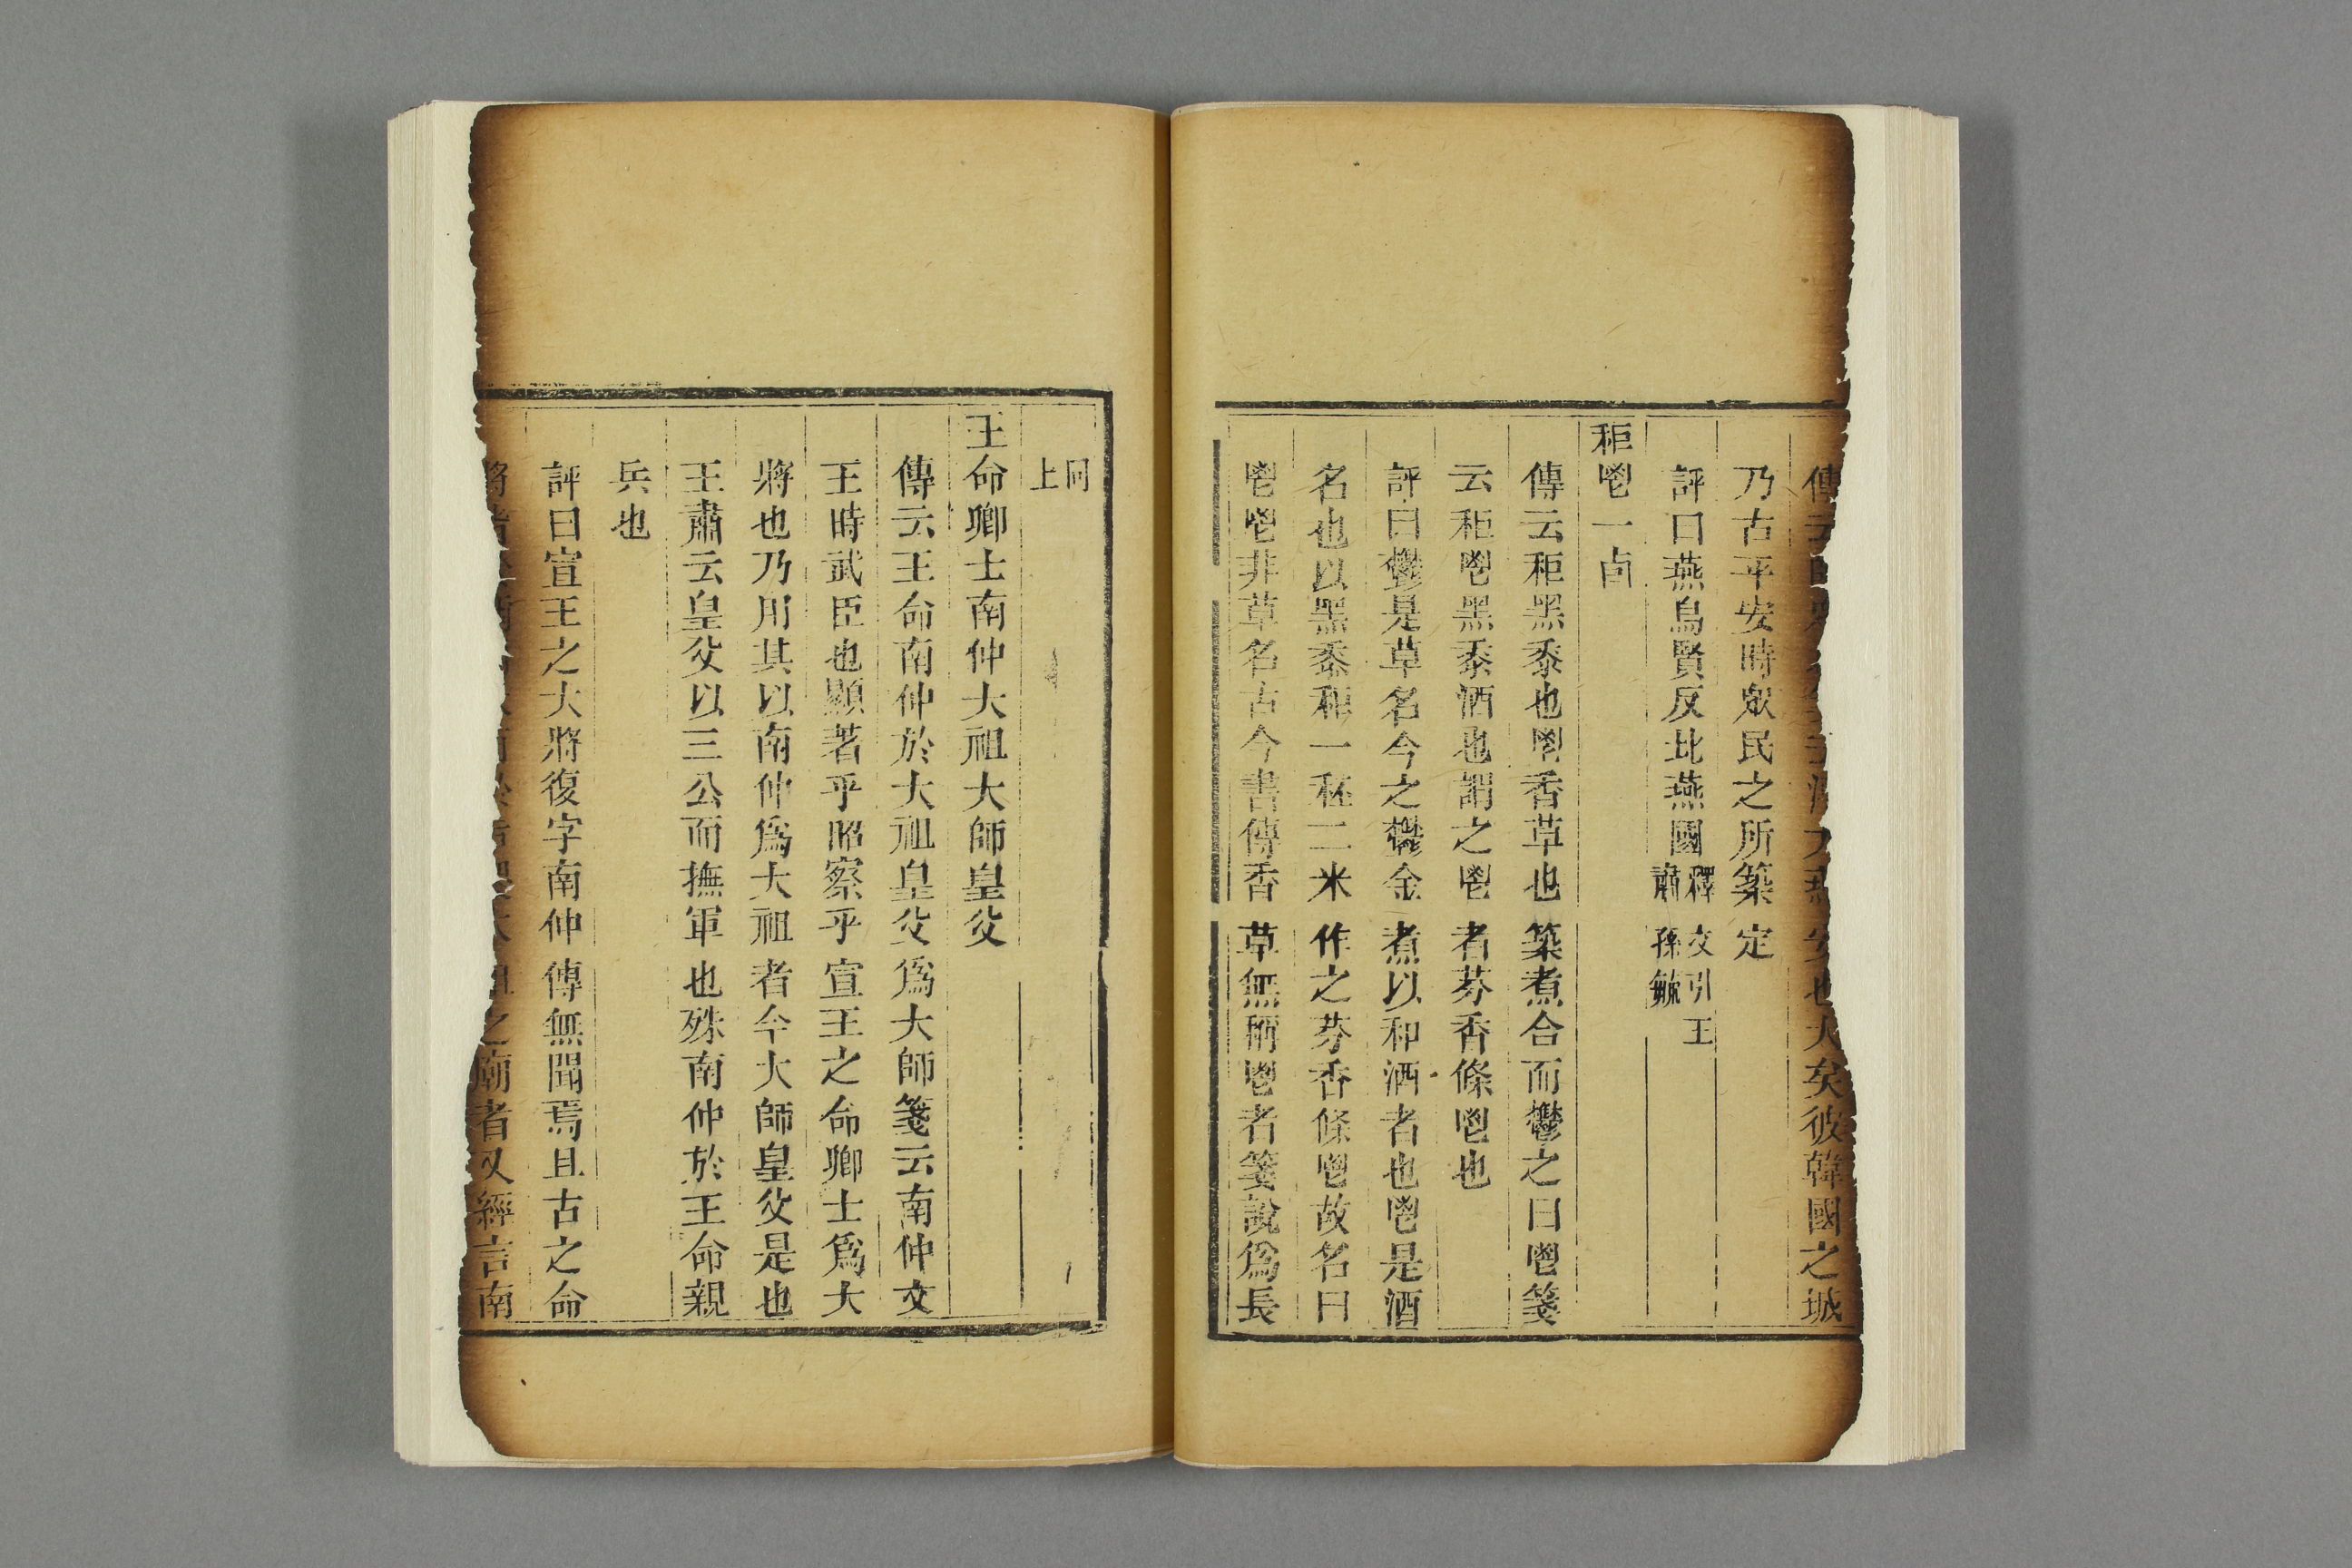 傳云師衆也箋云溥大燕安也大矣彼韓國之城
乃古平安時衆民之所築定
評曰燕烏賢反北燕國釋文引王肅孫毓
秬鬯一卣
傳云秬黑黍也鬯香草也築煮合而鬱之曰鬯箋
云秬鬯黑黍酒也謂之鬯者芬香條鬯也
評曰鬱是草名今之鬱金煮以和酒者也鬯是酒
名也以黑黍秬一秠二米作之芬香條鬯故名曰
鬯鬯非草名古今書傳香草無稱鬯者箋說爲長
同上
王命卿士南仲大祖大師皇父
傳云王命南仲於大祖皇父爲大師箋云南仲文
王時武臣也顯著乎昭察乎宣王之命卿士爲大
將也乃用其以南仲爲大祖者今大師皇父是也
王肅云皇父以三公而撫軍也殊南仲於王命親
兵也
評曰宣王之大將復字南仲傳無聞焉且古之命
將者祖之廟者又經言南